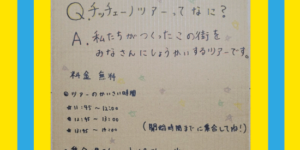 Q.チッチェーノツアーってなに？
A.私たちがつくったこの街を
みなさんにしょうかいするツアーです。
料金 無料
ツアーのかいさい時間
11:45～12:00
12:45～13:00
13:45～
(開始時間までに集合してね!)